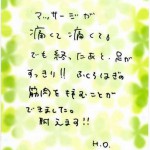 マッサージが
痛くて痛くても
でも 経ったあと、足が
すっきり!! ふくらはぎの
筋肉を揉むことが
できました。
耐えます!!
H.O.